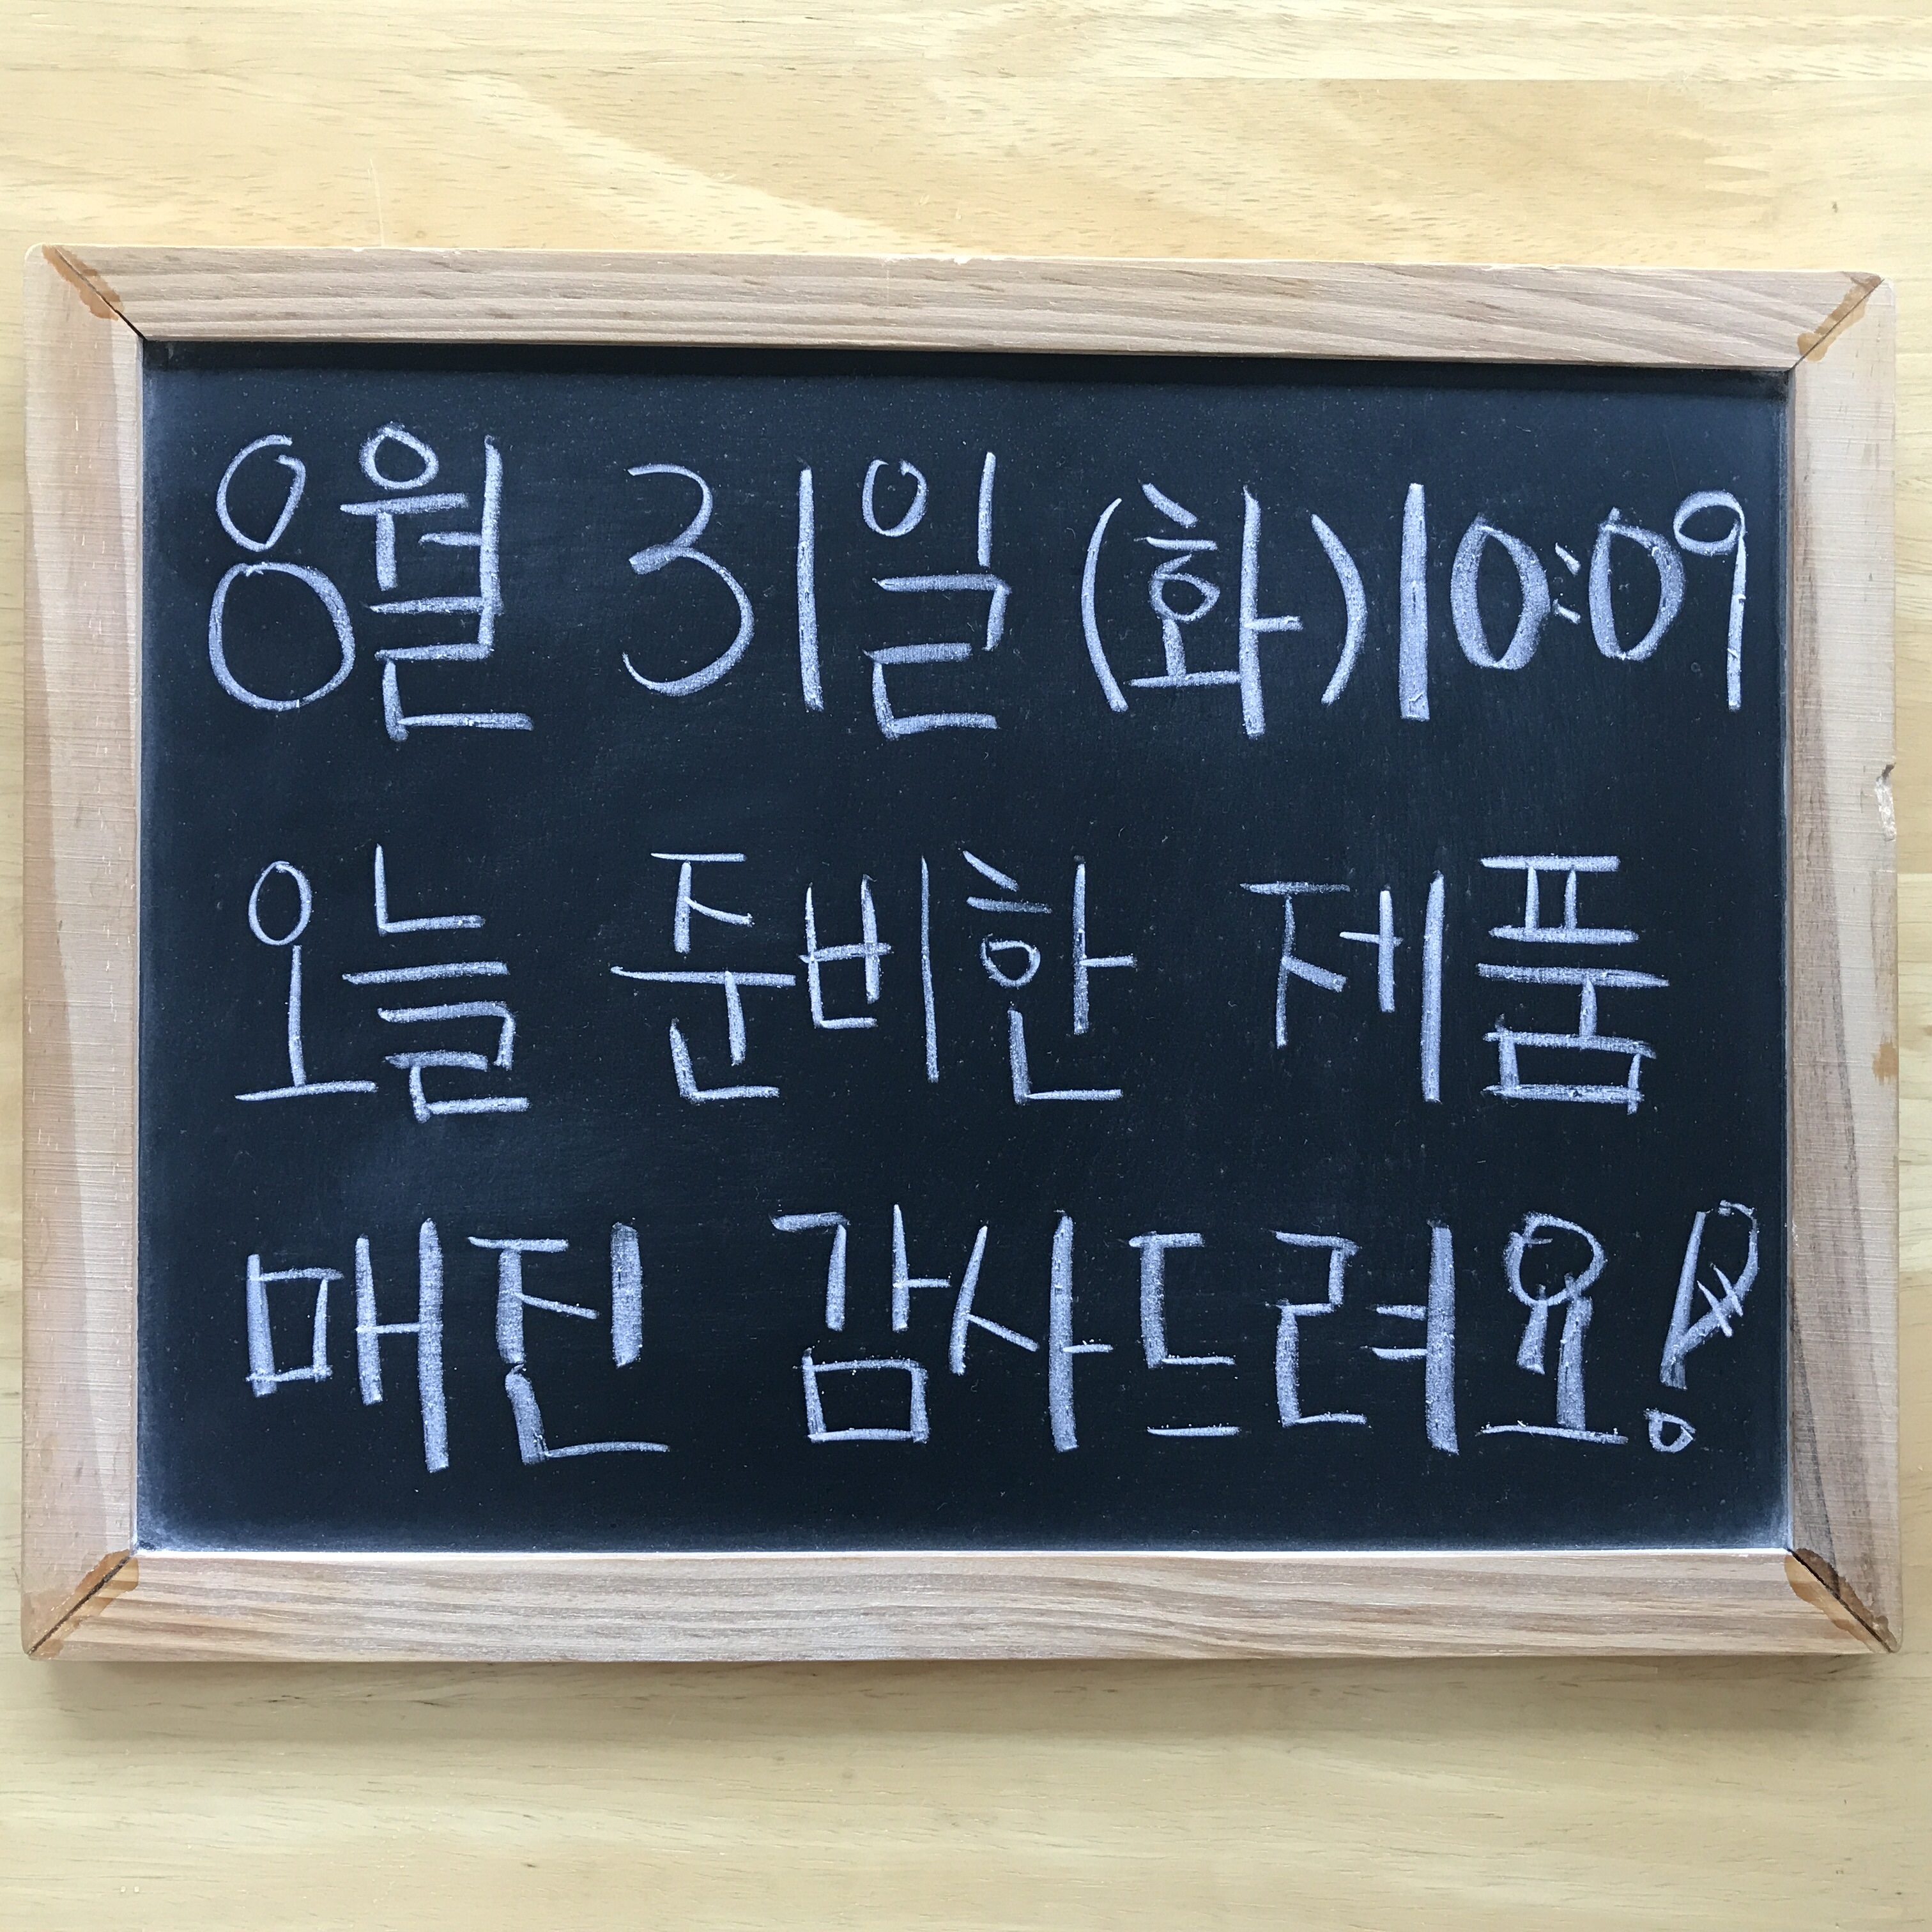 8월 31일 (화) 10:09
오늘 준비한 제품
매진 감사드려요!